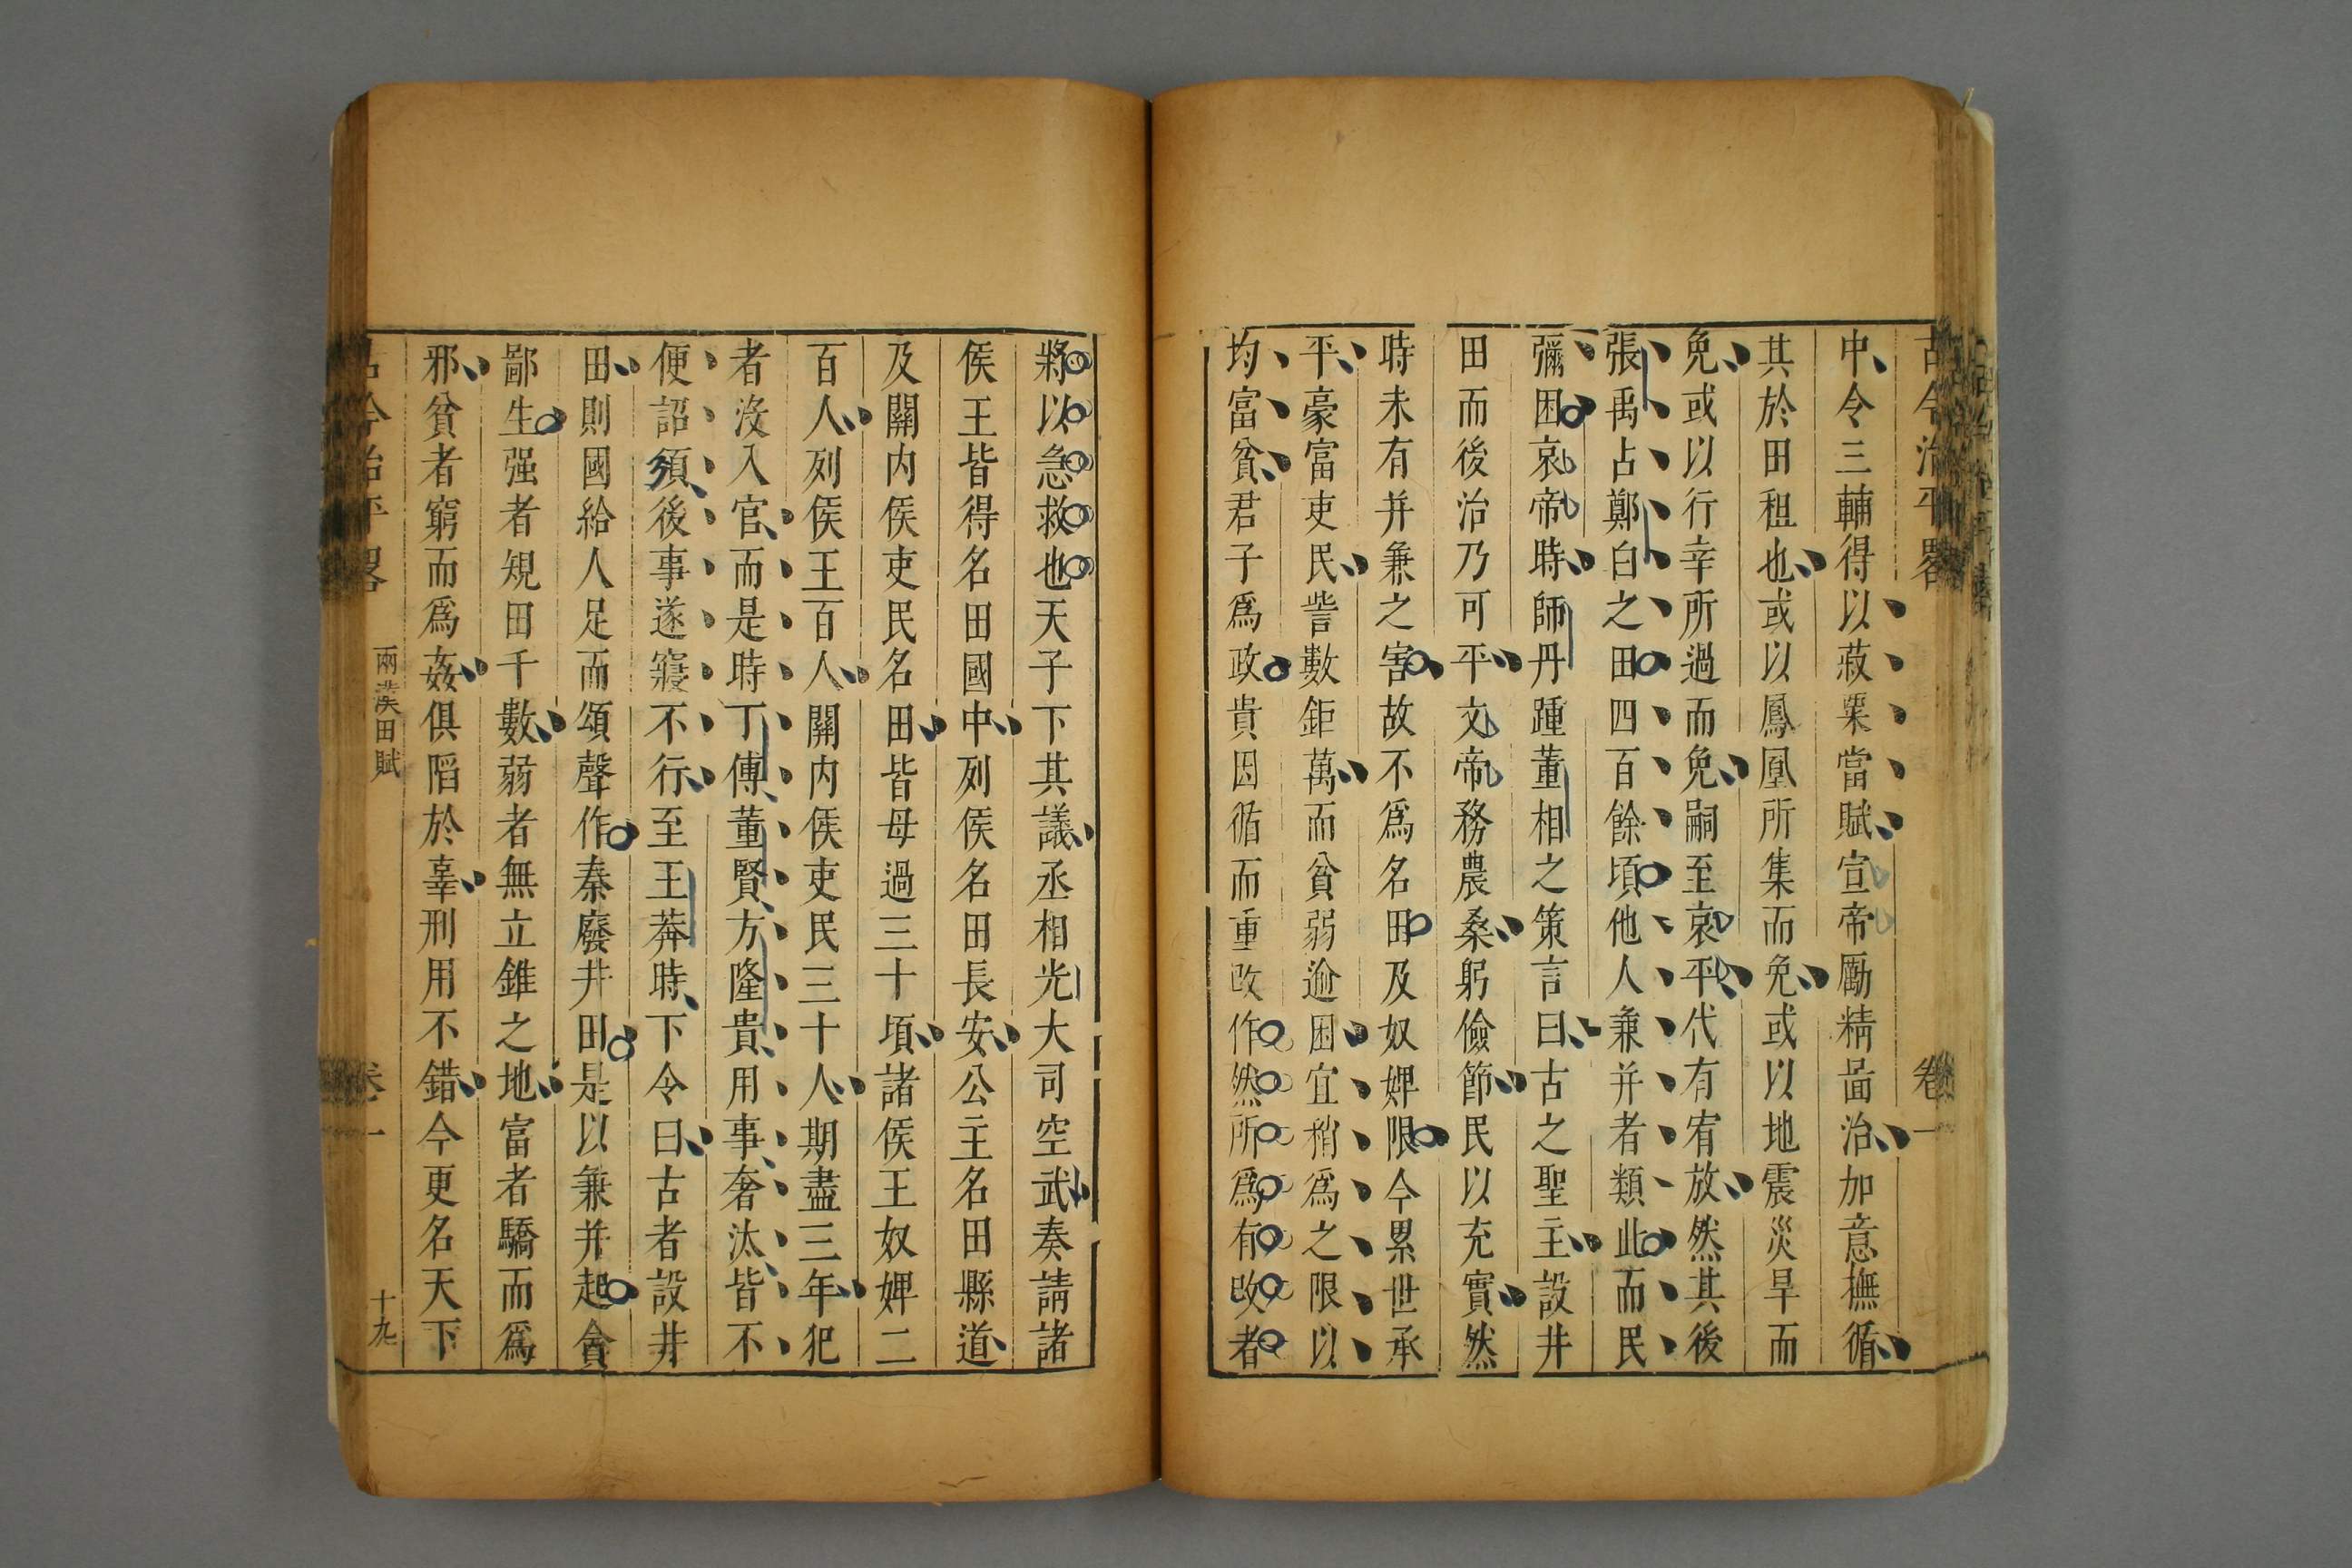 古今治平畧 卷一
中令三輔得以菽粟當賦宣帝勵精啚治加意撫循
其於田租也或以鳳凰所集而免或以地震災旱而
免或以行幸所過而免嗣至哀平代有宥放然其後
張禹占鄭白之田四百餘頃他人兼并者類此而民
彌困哀帝時師丹踵董相之策言曰古之聖主設井
田而後治乃可平文帝務農桑躬儉節民以充實然
時未有并兼之害故不爲名田及奴婢限今累世承
平豪富吏民訾數鉅萬而貧弱逾困宜稍爲之限以
均富貧君子爲政貴因循而重改作然所爲有改者
將以急救也天子下其議丞相光大司空武奏請諸
侯王皆得名田國中列侯名田長安公主名田縣道
及關内侯吏民名田皆毋過三十頃諸侯王奴婢二
百人列侯王百人關内侯吏民三十人期盡三年犯
者沒入官而是時丁傅董賢方隆貴用事奢汰皆不
便詔須後事遂寢不行至王莽時下令曰古者設井
田則國給人足而頌聲作秦廢井田是以兼并起貪
鄙生强者規田千數弱者無立錐之地富者驕而爲
邪貧者窮而爲姦俱陷於辜刑用不錯今更名天下
古今治平畧 兩漢田賦 卷一 十九